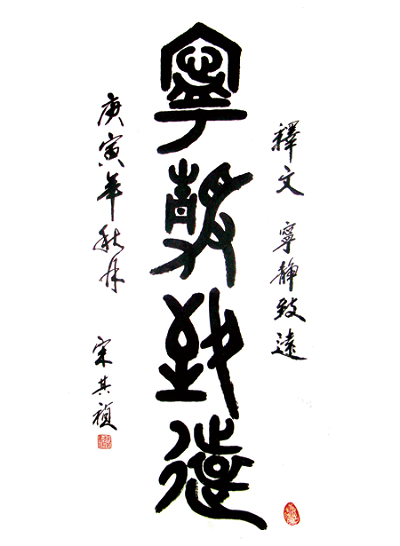 釋文 寧靜致遠
寧靜致遠
庚寅年秋月 宋其禎